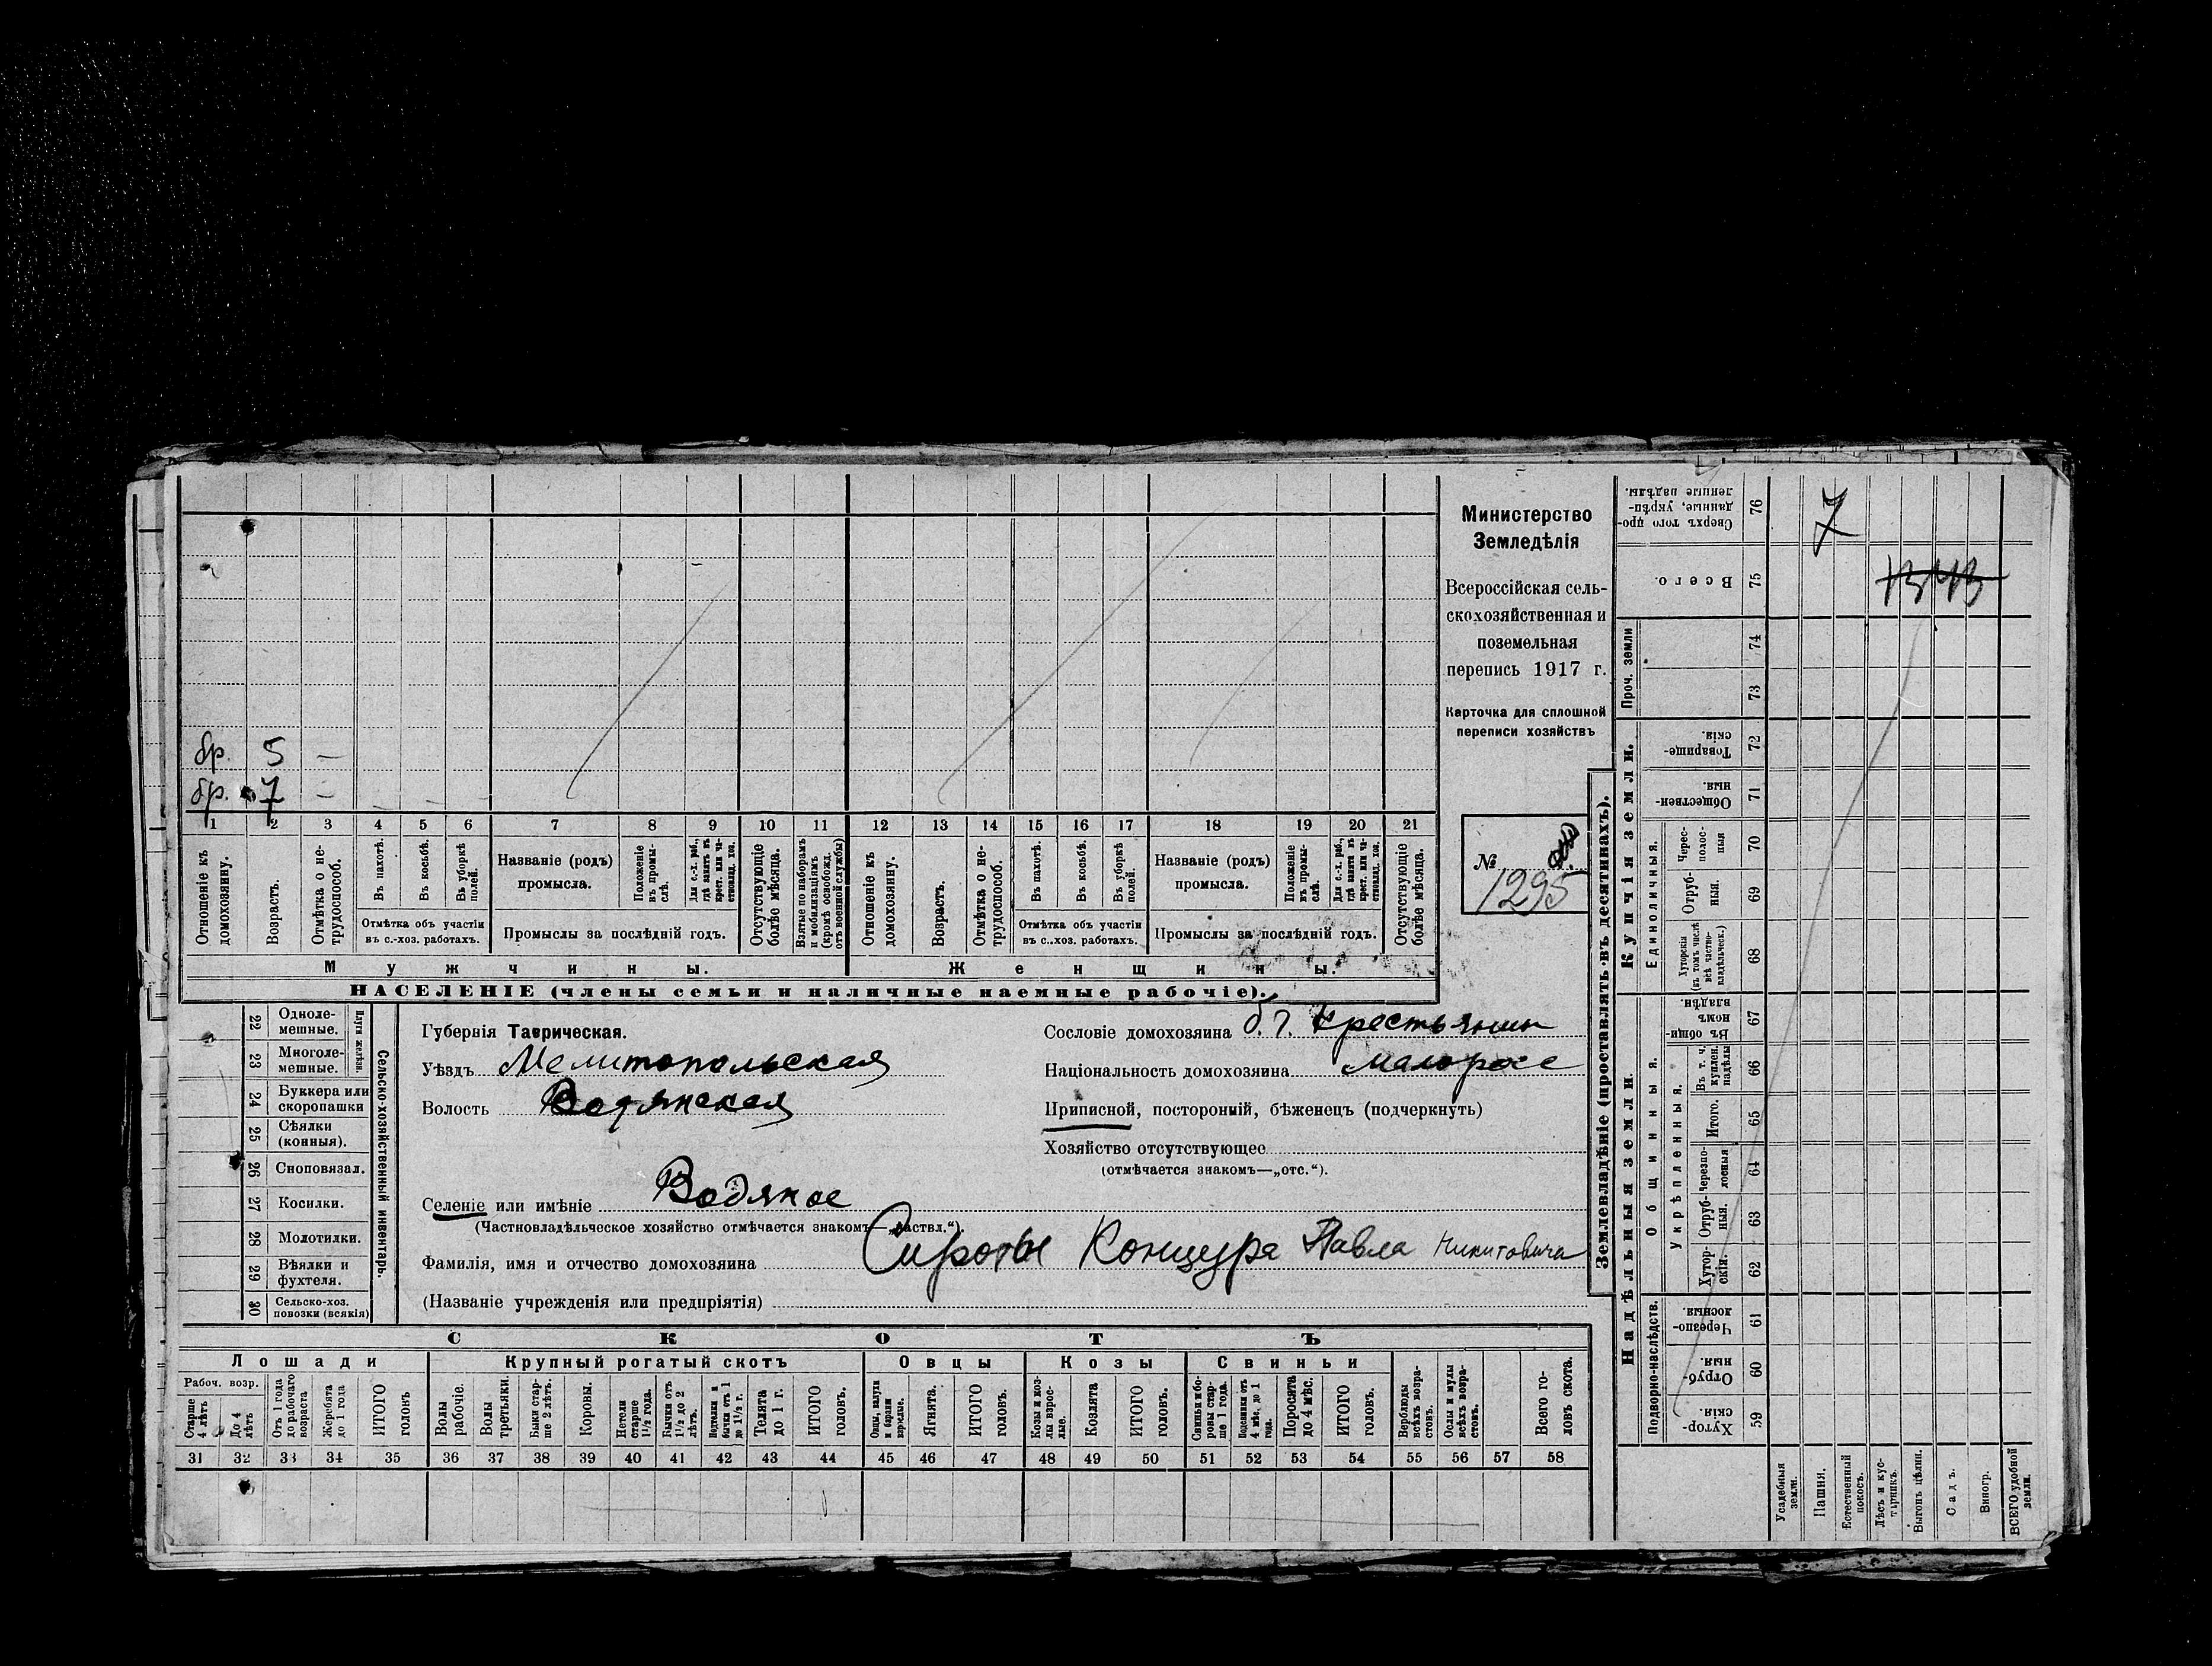 Министерство
Земледѣлія
Всероссійская сель-
скохозяйственная и
поземельная
перепись 1917 г.
Карточка для сплошной
переписи хозяйствъ
№
1295
бр. 5 —
бр. 7 —
1 2 3 4 5 6 7 8 9 10 11 12 13 14 15 16 17 18 19 20 21
Отношеніе къ домохозяину.
Возрастъ.
Отмѣтка о не-трудоспособ.
Въ пахотѣ.
Въ косьбѣ.
Въ уборкѣ полей.
Отмѣтка объ участіи
въ с.-хоз. работахъ.
Названіе (родъ)
промысла.
Положеніе въ промы-слѣ.
Для с.-х. раб., гдѣ занятъ въ крест. или ча-стновлад. хоз.
Промыслы за послѣдній годъ.
Отсутствующіе болѣе мѣсяца.
Взятые по наборамъ и мобилизаціямъ (кромѣ освобожд. отъ военной службы)
Отношеніе къ домохозяину.
Возрастъ.
Отмѣтка о не-трудоспособ.
Въ пахотѣ.
Въ косьбѣ.
Въ уборкѣ полей.
Отмѣтка объ участіи
въ с.-хоз. работахъ.
Названіе (родъ)
промысла.
Положеніе въ промы-слѣ.
Для с.-х. раб., гдѣ занята въ крест. или ча-стновлад. хоз.
Промыслы за послѣдній годъ.
Отсутствующіе болѣе мѣсяца.
Мужчины. Женщины.
НАСЕЛЕНІЕ (члены семьи и наличные наемные рабочіе).
Сельско-хозяйственный инвентарь.
Плуги желѣзн.
22 Одноле-мешные.
23 Многоле-мешные.
24 Буккера или скоропашки
25 Сѣялки (конныя).
26 Сноповязал.
27 Косилки.
28 Молотилки.
29 Вѣялки и фухтеля.
30 Сельско-хоз. повозки (всякія)
Губернія Таврическая.
Уѣздъ Мелитопольская
Волость Водянская
Селеніе или имѣніе Водяное
(Частновладѣльческое хозяйство отмѣчается знакомъ—„частвл.“).
Фамилія, имя и отчество домохозяина Сироты Концура Павла Никитовича
(Названіе учрежденія или предпріятія)
Сословіе домохозяина б. г. крестьянин
Національность домохозяина малоросс
Приписной, посторонній, бѣженец (подчеркнуть)
Хозяйство отсутствующее
(отмѣчается знакомъ—„отс.“).
СКОТЪ
Лошади Крупный рогатый скотъ Овцы Козы Свиньи
Рабоч. возр.
Старше 4 лѣтъ
До 4 лѣтъ
Отъ 1 года до рабочаго возраста
Жеребята до 1 года
ИТОГО головъ
Волы рабочіе.
Волы третьяки.
Быки стар-ше 2 лѣтъ.
Коровы.
Нетели старше 1½ года.
Бычки отъ 1½ до 2 лѣтъ.
Подтелки и бычки отъ 1 до 1½ г.
Телята до 1 г.
ИТОГО головъ.
Овцы, валухи и бараны взрослые.
Ягнята.
ИТОГО головъ.
Козы и коз-лы взрос-лые.
Козлята
ИТОГО головъ.
Свиньи и бо-ровы стар-ше 1 года.
Подсвинки отъ 4 мѣс. до 1 года.
Поросята до 4 мѣс.
ИТОГО головъ.
Верблюды всѣхъ возра-стовъ.
Ослы и мулы всѣхъ возра-стовъ.
Всего го-ловъ скота.
31 32 33 34 35 36 37 38 39 40 41 42 43 44 45 46 47 48 49 50 51 52 53 54 55 56 57 58
Землевладѣніе (проставлять въ десятинахъ).
Надѣльныя земли.
Подворно-наслѣдств.
Хутор-скія. 59
Отруб-ныя. 60
Черезпо-лосныя. 61
Общинныя.
Укрѣпленныя.
Хутор-скія. 62
Отруб-ныя. 63
Черезпо-лосныя 64
Итого. 65
Въ т. ч. куплен. надѣлы 66
Въ общи-номъ владѣн. 67
Купчія земли.
Единоличныя.
Хуторскія (въ томъ числѣ всѣ частно-владѣльческ.) 68
Отруб-ныя. 69
Черес-полос-ныя 70
Обществен-ныя. 71
Товарище-скія. 72
Проч. земли
73
74
Всего. 75
Сверхъ того про-данные, укрѣп-ленные надѣлы. 76
7
Усадебныя земли.
Пашня.
Естественный покосъ.
Лѣсъ и кус-тарникъ.
Выгонъ цѣлин.
Садъ.
Виногр.
ВСЕГО удобной земли.